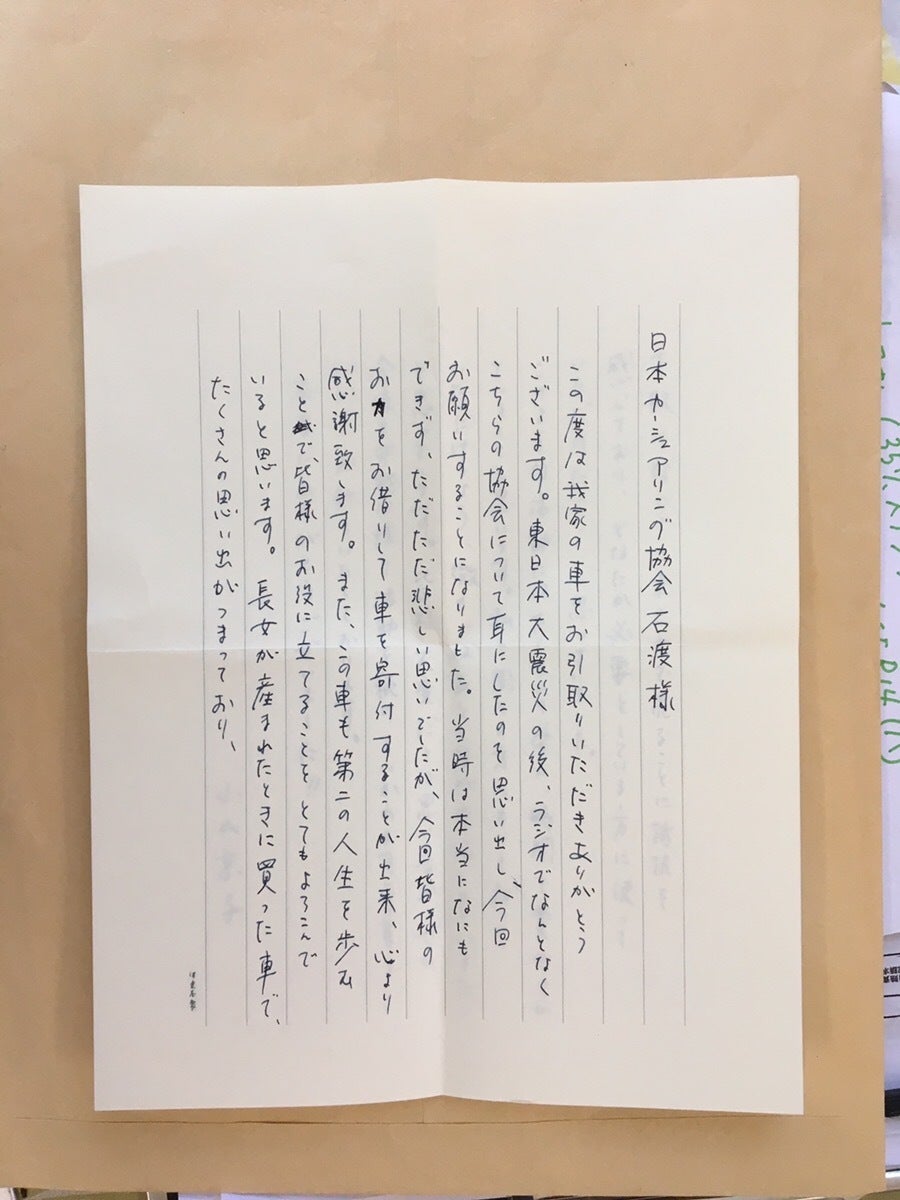 日本カーシェアリング協会 石渡様
この度は我家の車をお引取りいただきありがとう
ございます。東日本大震災の後、ラジオでなんとなく
こちらの協会について耳にしたのを思い出し、今回
お願いすることになりました。当時は本当になにも
できず、ただただ悲しい思いでしたが、今回皆様の
お力をお借りして車を寄付することが出来、心より
感謝致します。また、この車も第二の人生を歩む
ことで、皆様のお役に立てることをとてもよろこんで
いると思います。長女が産まれたときに買った車で、
たくさんの思い出がつまっており、